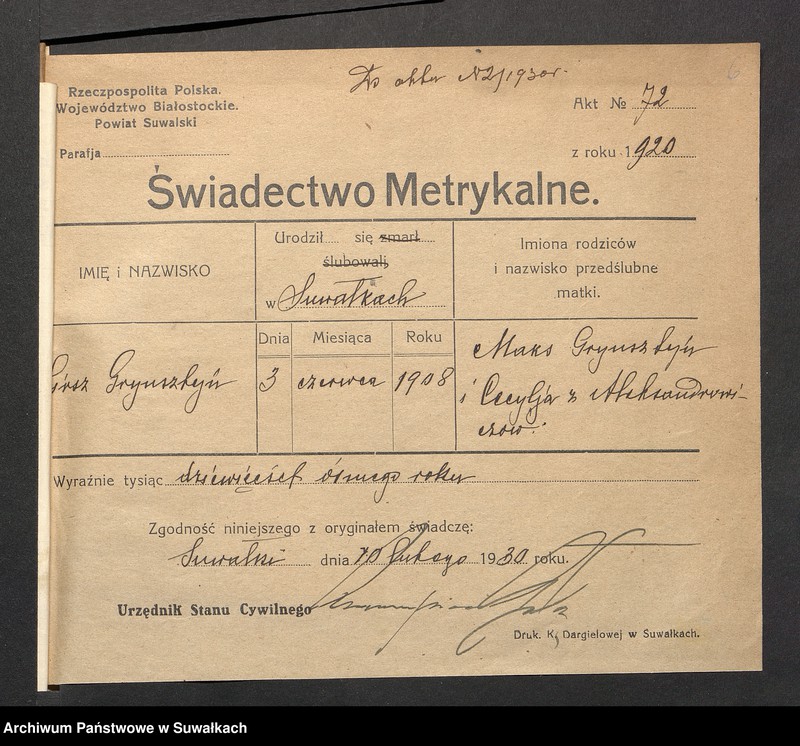 Do aktu N2/1930r.
6
Rzeczpospolita Polska.
Województwo Białostockie.
Powiat Suwalski
Parafja
Akt № 72
z roku 1920
Świadectwo Metrykalne.
IMIĘ i NAZWISKO
Urodził się zmarł
ślubowali,
w Suwałkach
Imiona rodziców
i nazwisko przedślubne
matki.
Dnia Miesiąca Roku
Grynsztejn
3 czerwca 1908
Maks Grynsztejn
i Cecylja z Aleksandrowi-
czów.
Wyraźnie tysiąc dziewięćset ósmego roku
Zgodność niniejszego z oryginałem świadczę:
Suwałki dnia 10 lutego 1930 roku.
Urzędnik Stanu Cywilnego
Druk. K. Dargielowej w Suwałkach.
Archiwum Państwowe w Suwałkach